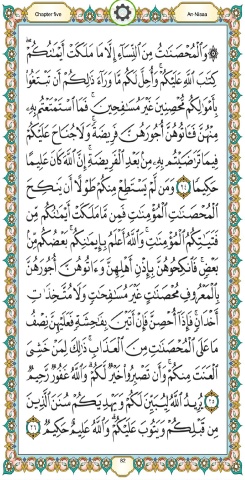 Chapter five
An-Nisaa
۞ وَالْمُحْصَنَاتُ مِنَ النِّسَاءِ إِلَّا مَا مَلَكَتْ أَيْمَانُكُمْ
كِتَابَ اللَّهِ عَلَيْكُمْ وَأُحِلَّ لَكُم مَّا وَرَاءَ ذَٰلِكُمْ أَن تَبْتَغُوا
بِأَمْوَالِكُم مُّحْصِنِينَ غَيْرَ مُسَافِحِينَ فَمَا اسْتَمْتَعْتُم بِهِ
مِنْهُنَّ فَآتُوهُنَّ أُجُورَهُنَّ فَرِيضَةً وَلَا جُنَاحَ عَلَيْكُمْ
فِيمَا تَرَاضَيْتُم بِهِ مِن بَعْدِ الْفَرِيضَةِ إِنَّ اللَّهَ كَانَ عَلِيمًا
حَكِيمًا ٢٤ وَمَن لَّمْ يَسْتَطِعْ مِنكُمْ طَوْلًا أَن يَنكِحَ
الْمُحْصَنَاتِ الْمُؤْمِنَاتِ فَمِن مَّا مَلَكَتْ أَيْمَانُكُم مِّن
فَتَيَاتِكُمُ الْمُؤْمِنَاتِ وَاللَّهُ أَعْلَمُ بِإِيمَانِكُم بَعْضُكُم مِّن
بَعْضٍ فَانكِحُوهُنَّ بِإِذْنِ أَهْلِهِنَّ وَآتُوهُنَّ أُجُورَهُنَّ
بِالْمَعْرُوفِ مُحْصَنَاتٍ غَيْرَ مُسَافِحَاتٍ وَلَا مُتَّخِذَاتِ
أَخْدَانٍ فَإِذَا أُحْصِنَّ فَإِنْ أَتَيْنَ بِفَاحِشَةٍ فَعَلَيْهِنَّ نِصْفُ
مَا عَلَى الْمُحْصَنَاتِ مِنَ الْعَذَابِ ذَٰلِكَ لِمَنْ خَشِيَ
الْعَنَتَ مِنكُمْ وَأَن تَصْبِرُوا خَيْرٌ لَّكُمْ وَاللَّهُ غَفُورٌ رَّحِيمٌ
٢٥ يُرِيدُ اللَّهُ لِيُبَيِّنَ لَكُمْ وَيَهْدِيَكُمْ سُنَنَ الَّذِينَ
مِن قَبْلِكُمْ وَيَتُوبَ عَلَيْكُمْ وَاللَّهُ عَلِيمٌ حَكِيمٌ ٢٦
82